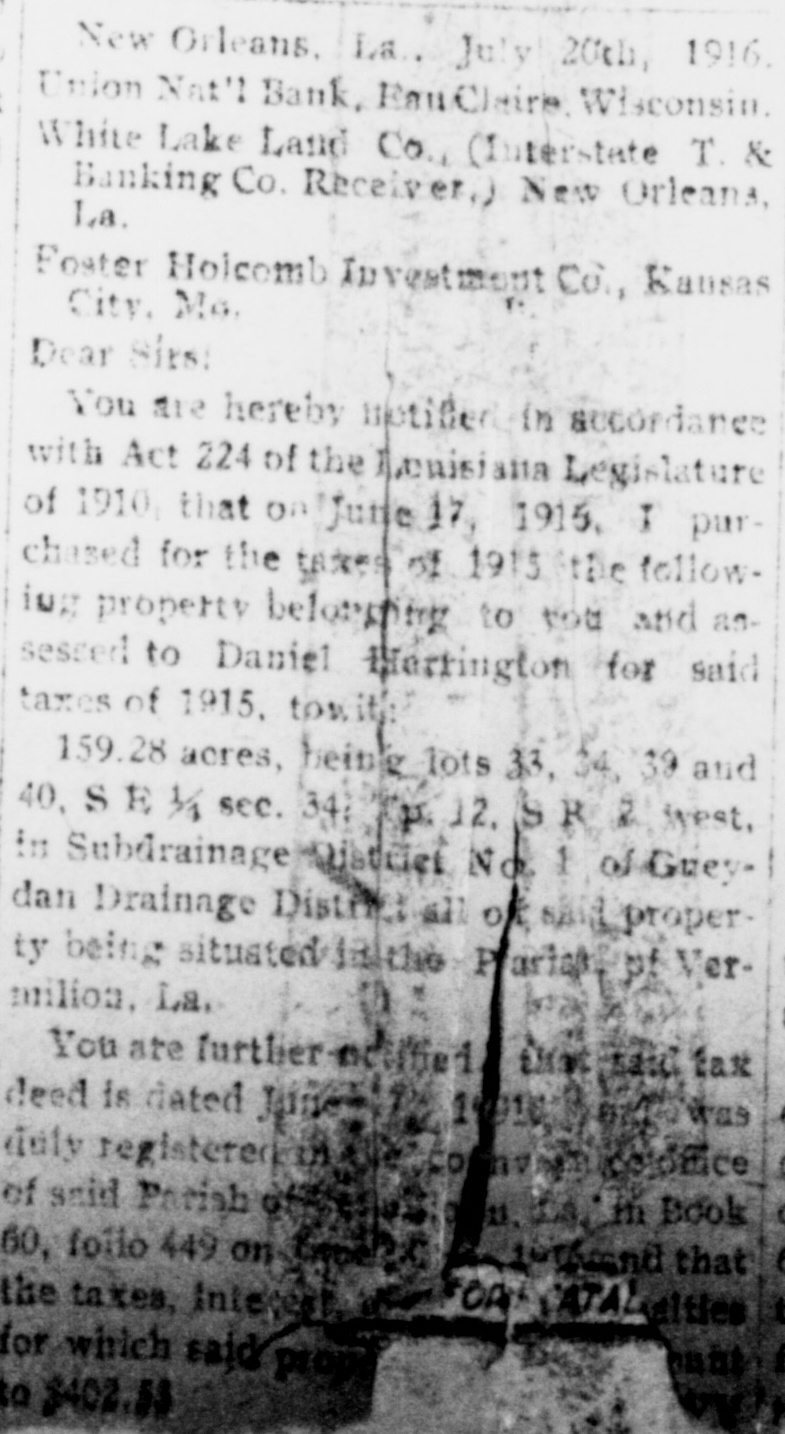 New Orleans, La., July 20th, 1916.
Union Nat'l Bank, Eau Claire, Wisconsin.
White Lake Land Co., (Interstate T. &
Banking Co. Receiver,) New Orleans,
La.
Foster Holcomb Investment Co., Kansas
City, Mo.
Dear Sirs:
You are hereby notified in accordance
with Act 224 of the Louisiana Legislature
of 1910, that on June 17, 1916, I pur-
chased for the taxes of 1915 the follow-
ing property belonging to you and as-
sessed to Daniel Harrington for said
taxes of 1915, towit:
159.28 acres, being lots 33, 34, 39 and
40, S E ¼ sec. 34; Tp. 12, S R 2 west,
in Subdrainage District No. 1 of Guey-
dan Drainage District all of said proper-
ty being situated in the Parish of Ver-
milion, La.
You are further notified that said tax
deed is dated June was
duly registered in the conveyance office
of said Parish of La. in Book
60, folio 449 on and that
the taxes, interest,
for which said
to $402.53